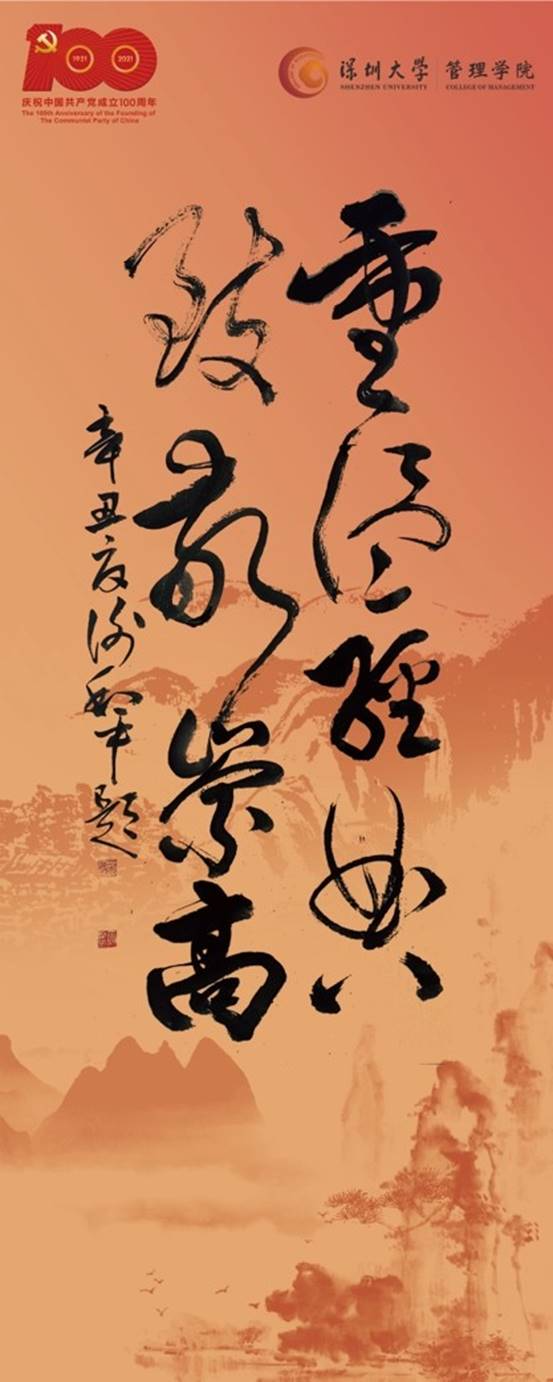 1921
2021
庆祝中国共产党成立100周年
The 100th Anniversary of the Founding of
The Communist Party of China
深圳大学
SHENZHEN UNIVERSITY
管理学院
COLLEGE OF MANAGEMENT
重温经典
致敬崇高
辛丑夏 题